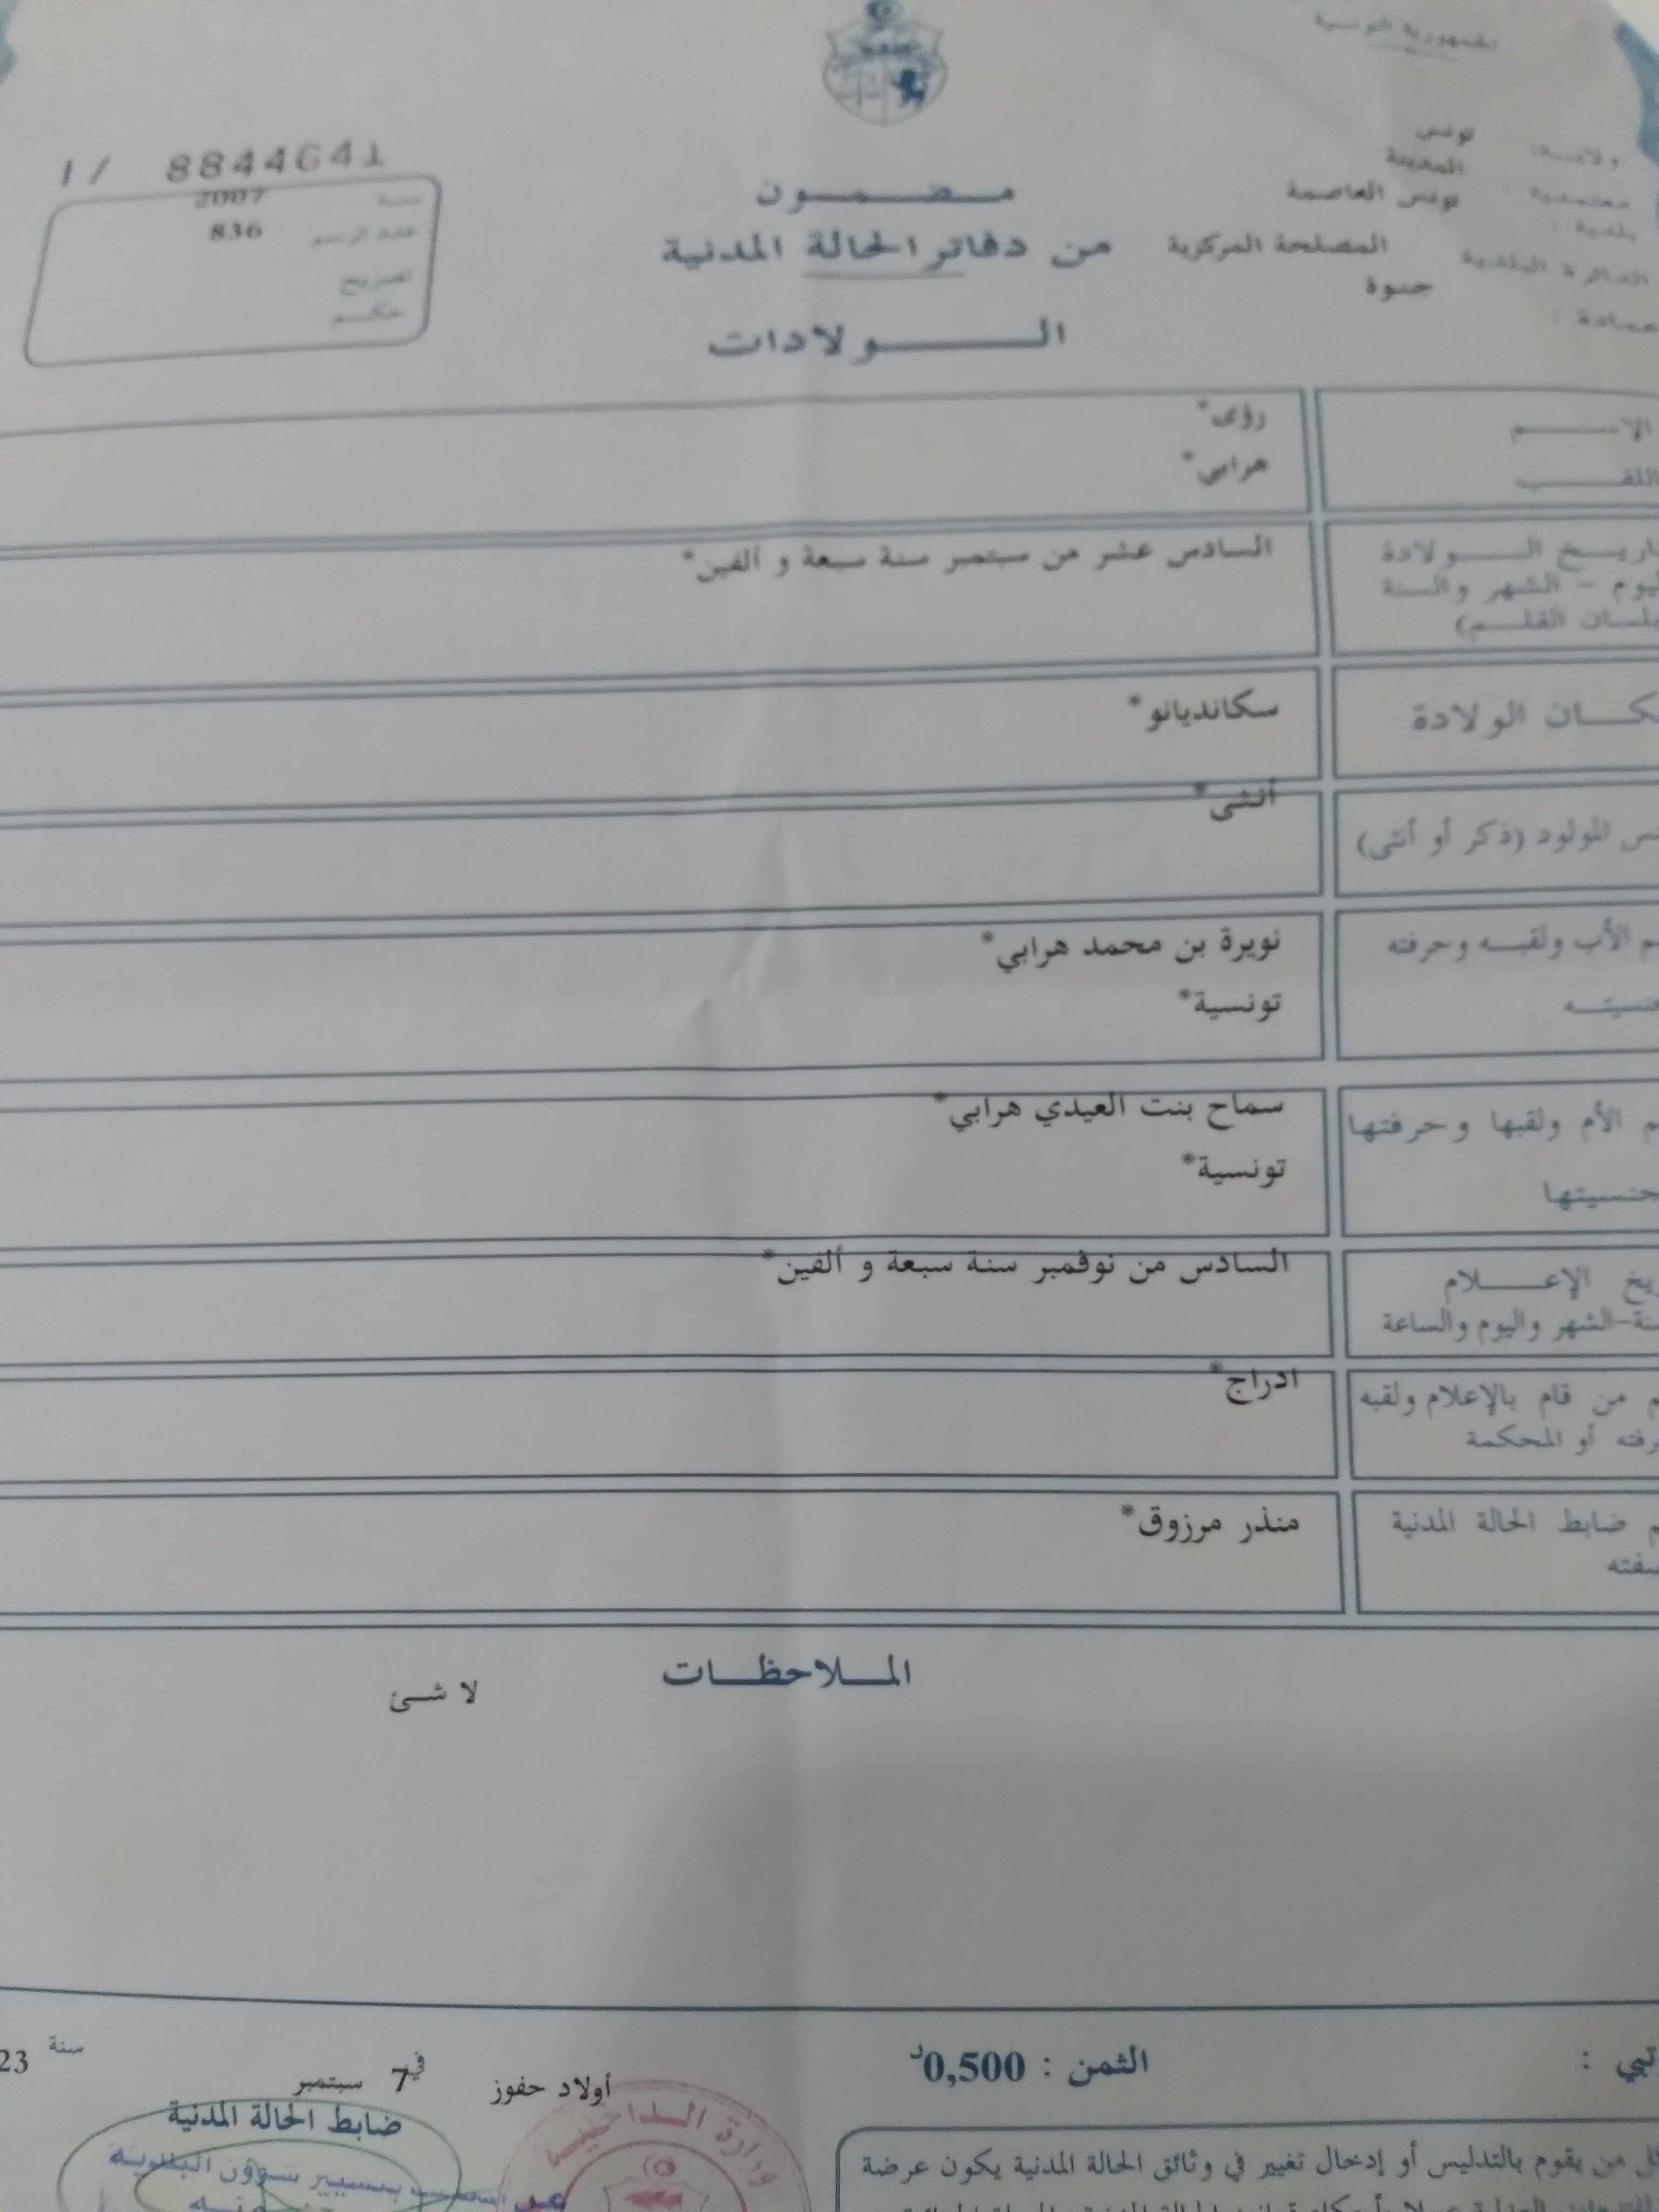 الجمهورية التونسية
ولاية: تونس
معتمدية : المدينة
بلدية : تونس العاصمة
الدائرة البلدية المصلحة المركزية
عمادة : جنوة
مضمون
من دفاتر الحالة المدنية
الولادات
1 / 8844641
سنة 2007
عدد الرسم 836
تصريح
حكم
الاسم رؤى*
اللقب هرابي*
اريخ الولادة السادس عشر من سبتمبر سنة سبعة و ألفين*
ليوم - الشهر والسنة
بلسان القلم)
كان الولادة سكانديانو*
نس المولود (ذكر أو أنثى) أنثى*
م الأب ولقبه وحرفته نويرة بن محمد هرابي*
نسيته تونسية*
م الأم ولقبها وحرفتها سماح بنت العيدي هرابي*
جنسيتها تونسية*
ريخ الإعلام السادس من نوفمبر سنة سبعة و ألفين*
سنة-الشهر واليوم والساعة
م من قام بالإعلام ولقبه ادراج*
رفته أو المحكمة
م ضابط الحالة المدنية منذر مرزوق*
سفته
الملاحظات
لا شئ
تبي :
الثمن : 0,500د
أولاد حفوز في 7 سبتمبر سنة 23
ضابط الحالة المدنية
بتسيير شؤون البلدية
وزارة الداخلية
كل من يقوم بالتدليس أو إدخال تغيير في وثائق الحالة المدنية يكون عرضة